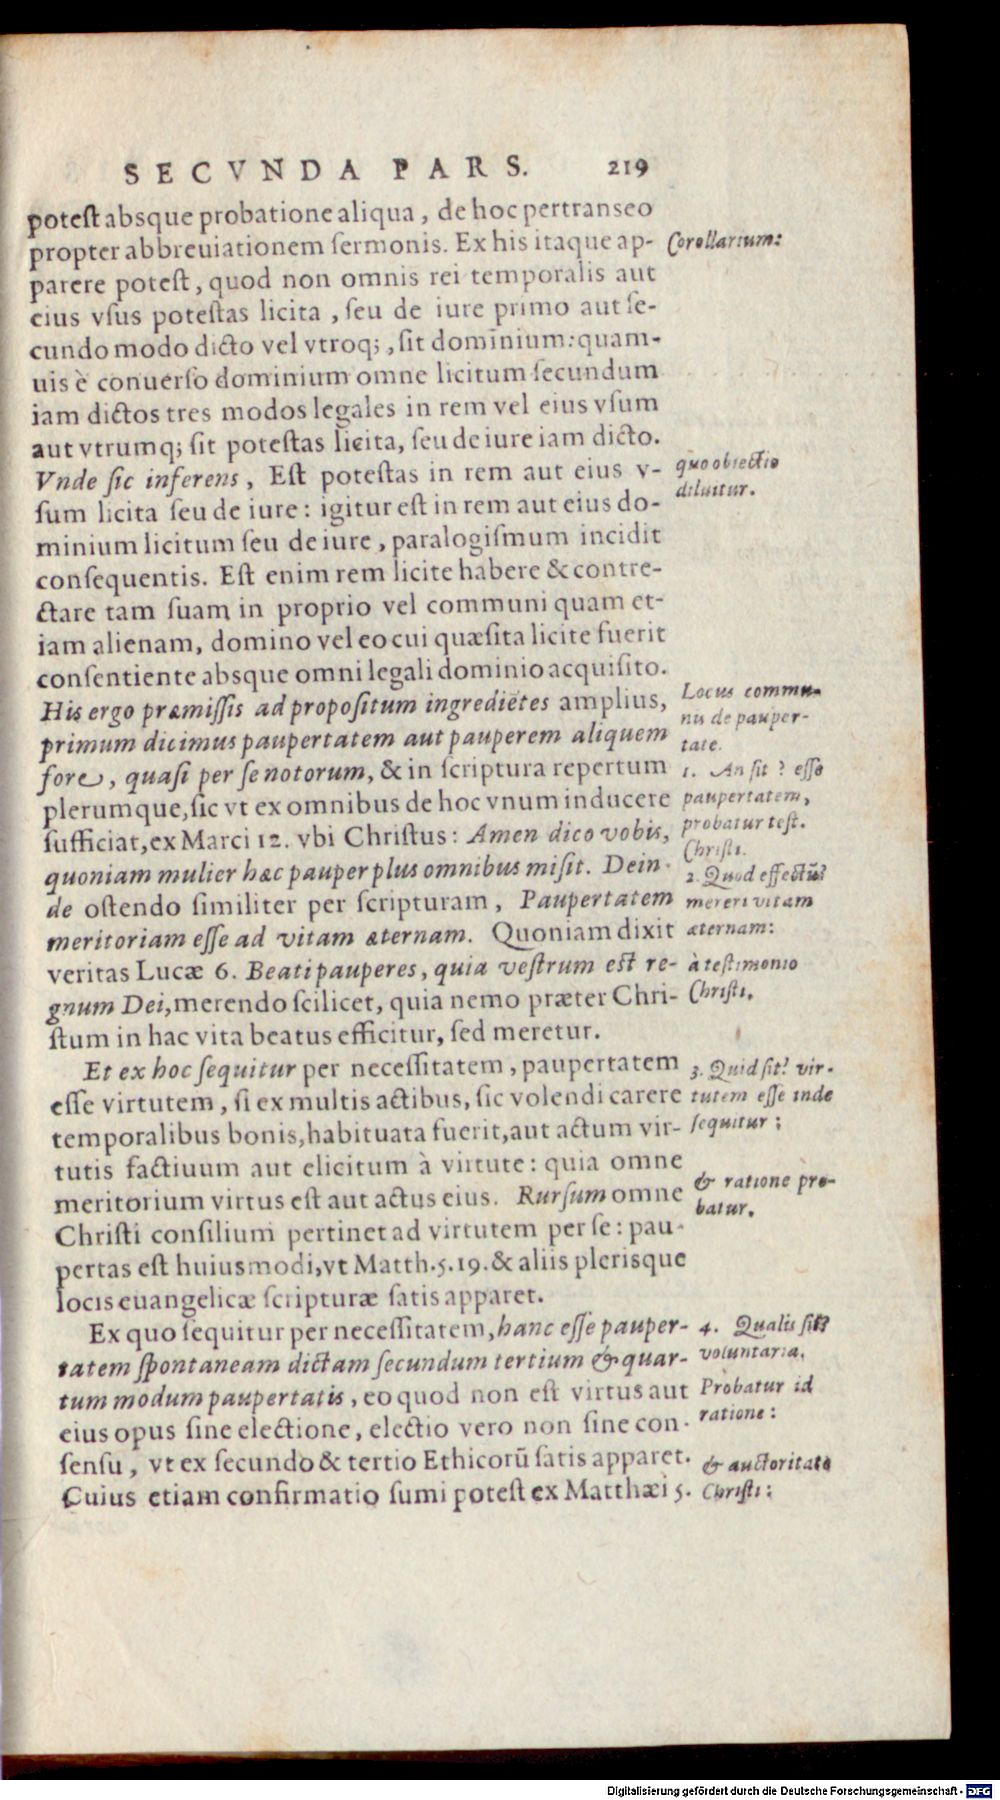 SECVNDA PARS. 219
potest absque probatione aliqua, de hoc pertranseo
propter abbreuiationem sermonis. Ex his itaque ap-
parere potest, quod non omnis rei temporalis aut
eius vsus potestas licita, seu de iure primo aut se-
cundo modo dicto vel vtroq;, sit dominium: quam-
uis è conuerso dominium omne licitum secundum
iam dictos tres modos legales in rem vel eius vsum
aut vtrumq; sit potestas licita, seu de iure iam dicto.
Vnde sic inferens, Est potestas in rem aut eius v-
sum licita seu de iure: igitur est in rem aut eius do-
minium licitum seu de iure, paralogismum incidit
consequentis. Est enim rem licite habere & contre-
ctare tam suam in proprio vel communi quam et-
iam alienam, domino vel eo cui quæsita licite fuerit
consentiente absque omni legali dominio acquisito.
His ergo præmissis ad propositum ingrediētes amplius,
primum dicimus paupertatem aut pauperem aliquem
fore, quasi per se notorum, & in scriptura repertum
plerumque, sic vt ex omnibus de hoc vnum inducere
sufficiat, ex Marci 12. vbi Christus: Amen dico vobis,
quoniam mulier hæc pauper plus omnibus misit. Dein-
de ostendo similiter per scripturam, Paupertatem
meritoriam esse ad vitam æternam. Quoniam dixit
veritas Lucæ 6. Beati pauperes, quia vestrum est re-
gnum Dei, merendo scilicet, quia nemo præter Chri-
stum in hac vita beatus efficitur, sed meretur.
Et ex hoc sequitur per necessitatem, paupertatem
esse virtutem, si ex multis actibus, sic volendi carere
temporalibus bonis, habituata fuerit, aut actum vir-
tutis factiuum aut elicitum à virtute: quia omne
meritorium virtus est aut actus eius. Rursum omne
Christi consilium pertinet ad virtutem per se: pau-
pertas est huiusmodi, vt Matth. 5. 19. & aliis plerisque
locis euangelicæ scripturæ satis apparet.
Ex quo sequitur per necessitatem, hanc esse pauper-
tatem spontaneam dictam secundum tertium & quar-
tum modum paupertatis, eo quod non est virtus aut
eius opus sine electione, electio vero non sine con-
sensu, vt ex secundo & tertio Ethicorū satis apparet.
Cuius etiam confirmatio sumi potest ex Matthæi 5.
Corollarium:
quo obiectio
diluitur.
Locus commu-
nis de pauper-
tate.
1. An sit? esse
paupertatem,
probatur test.
Christi.
2. Quod effectū?
mereri vitam
æternam:
à testimonio
Christi,
3. Quid sit? vir-
tutem esse inde
sequitur:
& ratione pro-
batur.
4. Qualis sit?
voluntaria.
Probatur id
ratione:
& auctoritate
Christi:
Digitalisierung gefördert durch die Deutsche Forschungsgemeinschaft - DFG